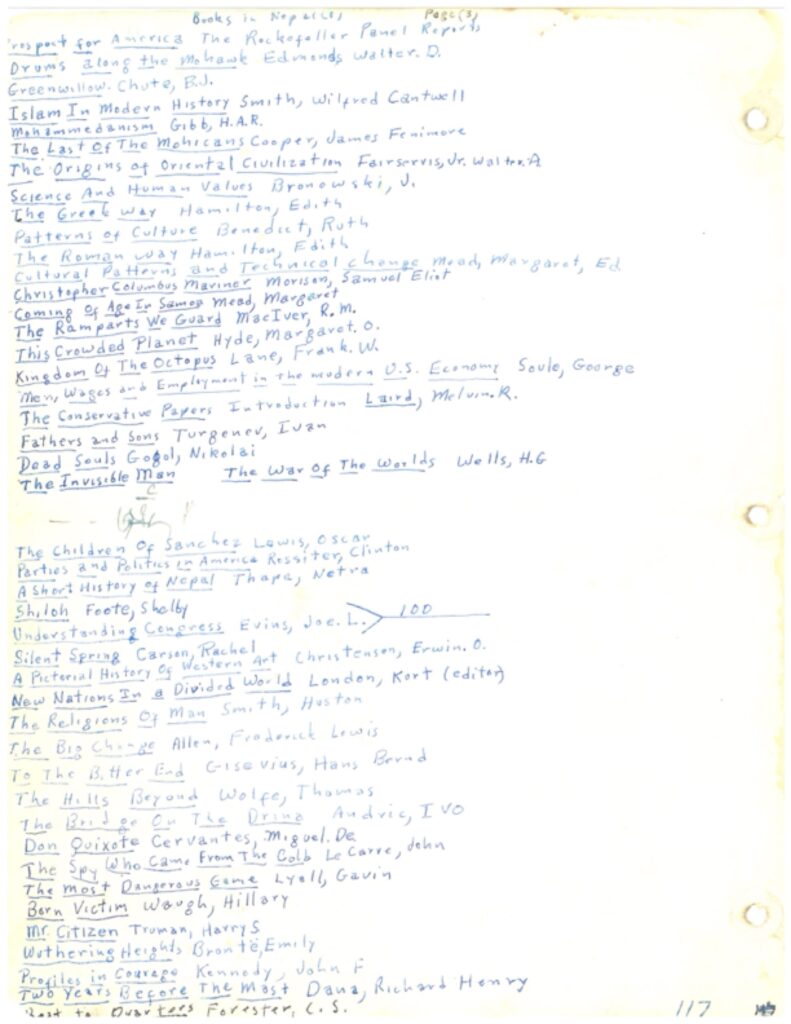 Books in Nepal(1) Page(3)
rospect for America The Rockefeller Panel Reports
Drums along the Mohawk Edmonds, Walter. D.
Greenwillow. Chute, B.J.
Islam In Modern History Smith, Wilfred Cantwell
Mohammedanism Gibb, H.A.R.
The Last Of The Mohicans Cooper, James Fenimore
The Origins of Oriental Civilization Fairservis, Jr. Walter. A
Science And Human Values Bronowski, J.
The Greek Way Hamilton, Edith
Patterns of Culture Benedict, Ruth
The Roman Way Hamilton, Edith
Cultural Patterns and Technical Change Mead, Margaret, Ed
Christopher Columbus Mariner Morison, Samuel Eliot
Coming Of Age In Samoa Mead, Margaret
The Ramparts We Guard MacIver, R.M.
This Crowded Planet Hyde, Margaret. O.
Kingdom Of The Octopus Lane, Frank. W.
Men, Wages and Employment in the modern U.S. Economy Soule, George
The Conservative Papers Introduction Laird, Melvin. R.
Fathers and Sons Turgenev, Ivan
Dead Souls Gogol, Nikolai
The Invisible Man The War Of The Worlds Wells, H.G
The Children Of Sanchez Lewis, Oscar
Parties and Politics in America Rossiter, Clinton
A Short History of Nepal Thapa, Netra
Shiloh Foote, Shelby
Understanding Congress Evins, Joe. L. 100
Silent Spring Carson, Rachel
A Pictorial History Of Western Art Christensen, Erwin. O.
New Nations In a Divided World London, Kurt (editor)
The Religions Of Man Smith, Huston
The Big Change Allen, Frederick Lewis
To The Bitter End Gisevius, Hans Bernd
The Hills Beyond Wolfe, Thomas
The Bridge On The Drina Andric, IVO
Don Quixote Cervantes, Miguel. De
The Spy Who Came From The Colb Le Carre, John
The Most Dangerous Game Lyall, Gavin
Born Victim Waugh, Hillary
Mr. Citizen Truman, Harry S
Wuthering Heights Brontë, Emily
Profiles in Courage Kennedy, John F
Two Years Before The Mast Dana, Richard Henry
Beat to Quarters Forester, C.S. 117